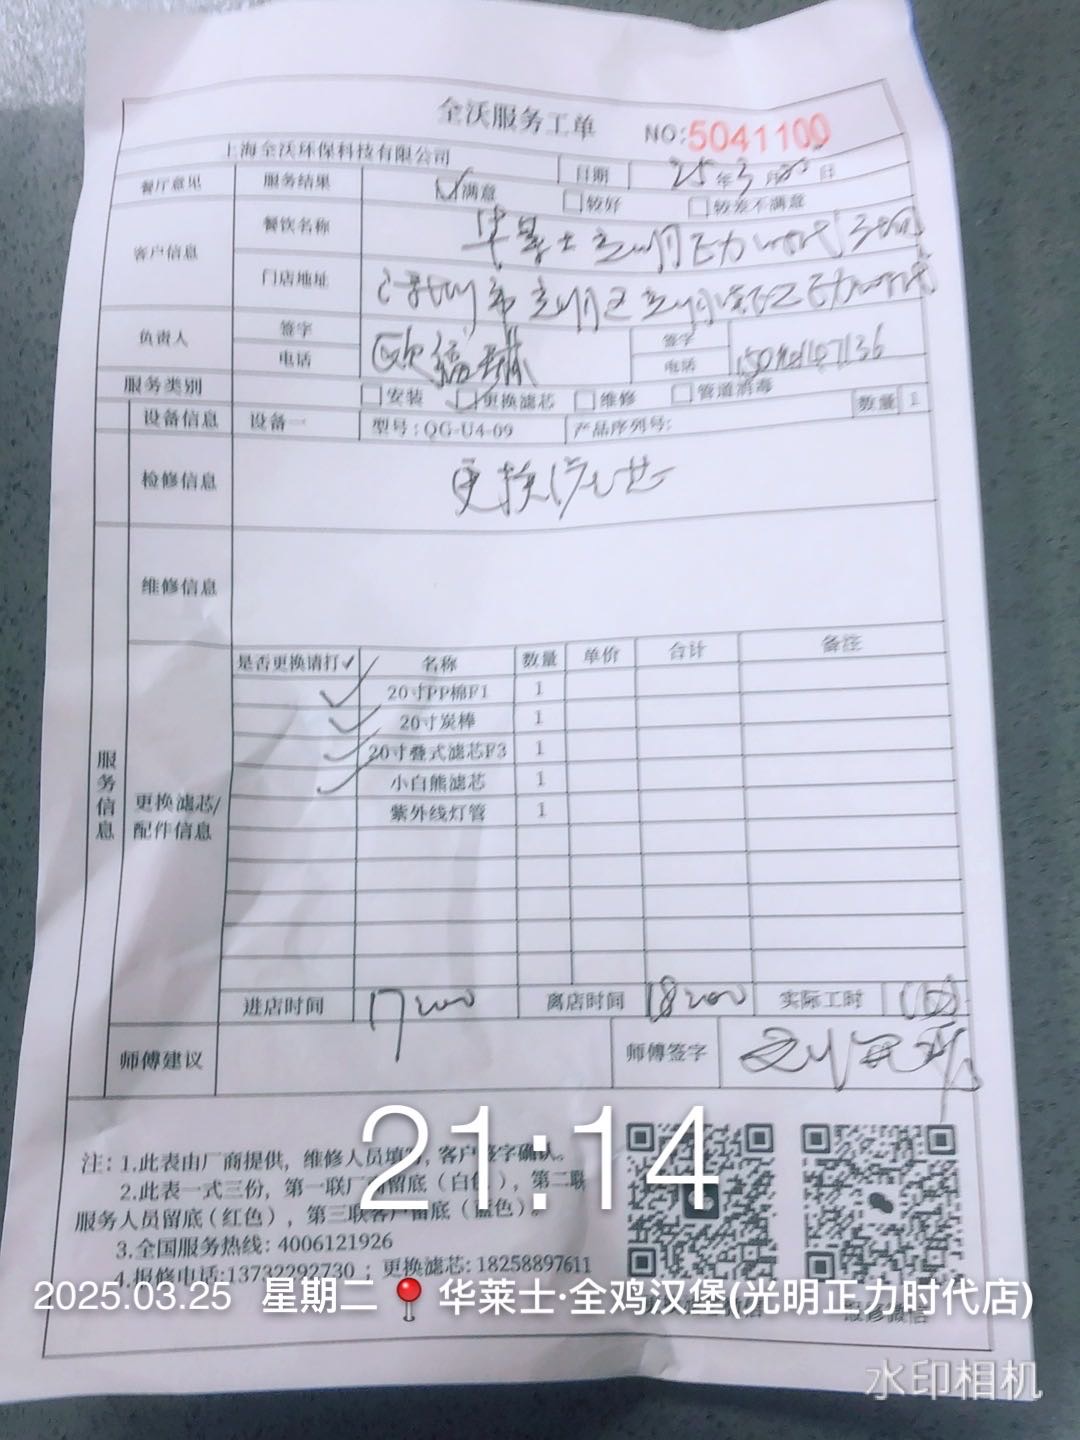 全沃服务工单 NO:5041100
上海全沃环保科技有限公司 日期 25年3月 日
餐厅意见 服务结果 ☑满意 □较好 □较差不满意
客户信息 餐饮名称 华莱士光明正力时代
门店地址 深圳市光明区光明 正力时代
负责人 签字 签字
电话 电话
服务类别 □安装 □更换滤芯 □维修 □管道消毒
设备信息 设备一 型号:QG-U4-09 产品序列号: 数量 1
检修信息 更换滤芯
维修信息
服务信息
更换滤芯/
配件信息
是否更换请打✓ 名称 数量 单价 合计 备注
✓ 20寸PP棉F1 1
✓ 20寸炭棒 1
✓ 20寸叠式滤芯F3 1
✓ 小白熊滤芯 1
紫外线灯管 1
进店时间 17:00 离店时间 18:00 实际工时
师傅建议 师傅签字
21:14
注: 1.此表由厂商提供, 维修人员填 , 客户签字确认。
2.此表一式三份, 第一联厂商留底(白色), 第二联
服务人员留底(红色), 第三联客户留底(蓝色)。
3.全国服务热线: 4006121926
4.报修电话:13732292730 ; 更换滤芯: 18258897611
报修微信
2025.03.25 星期二 华莱士·全鸡汉堡(光明正力时代店)
水印相机